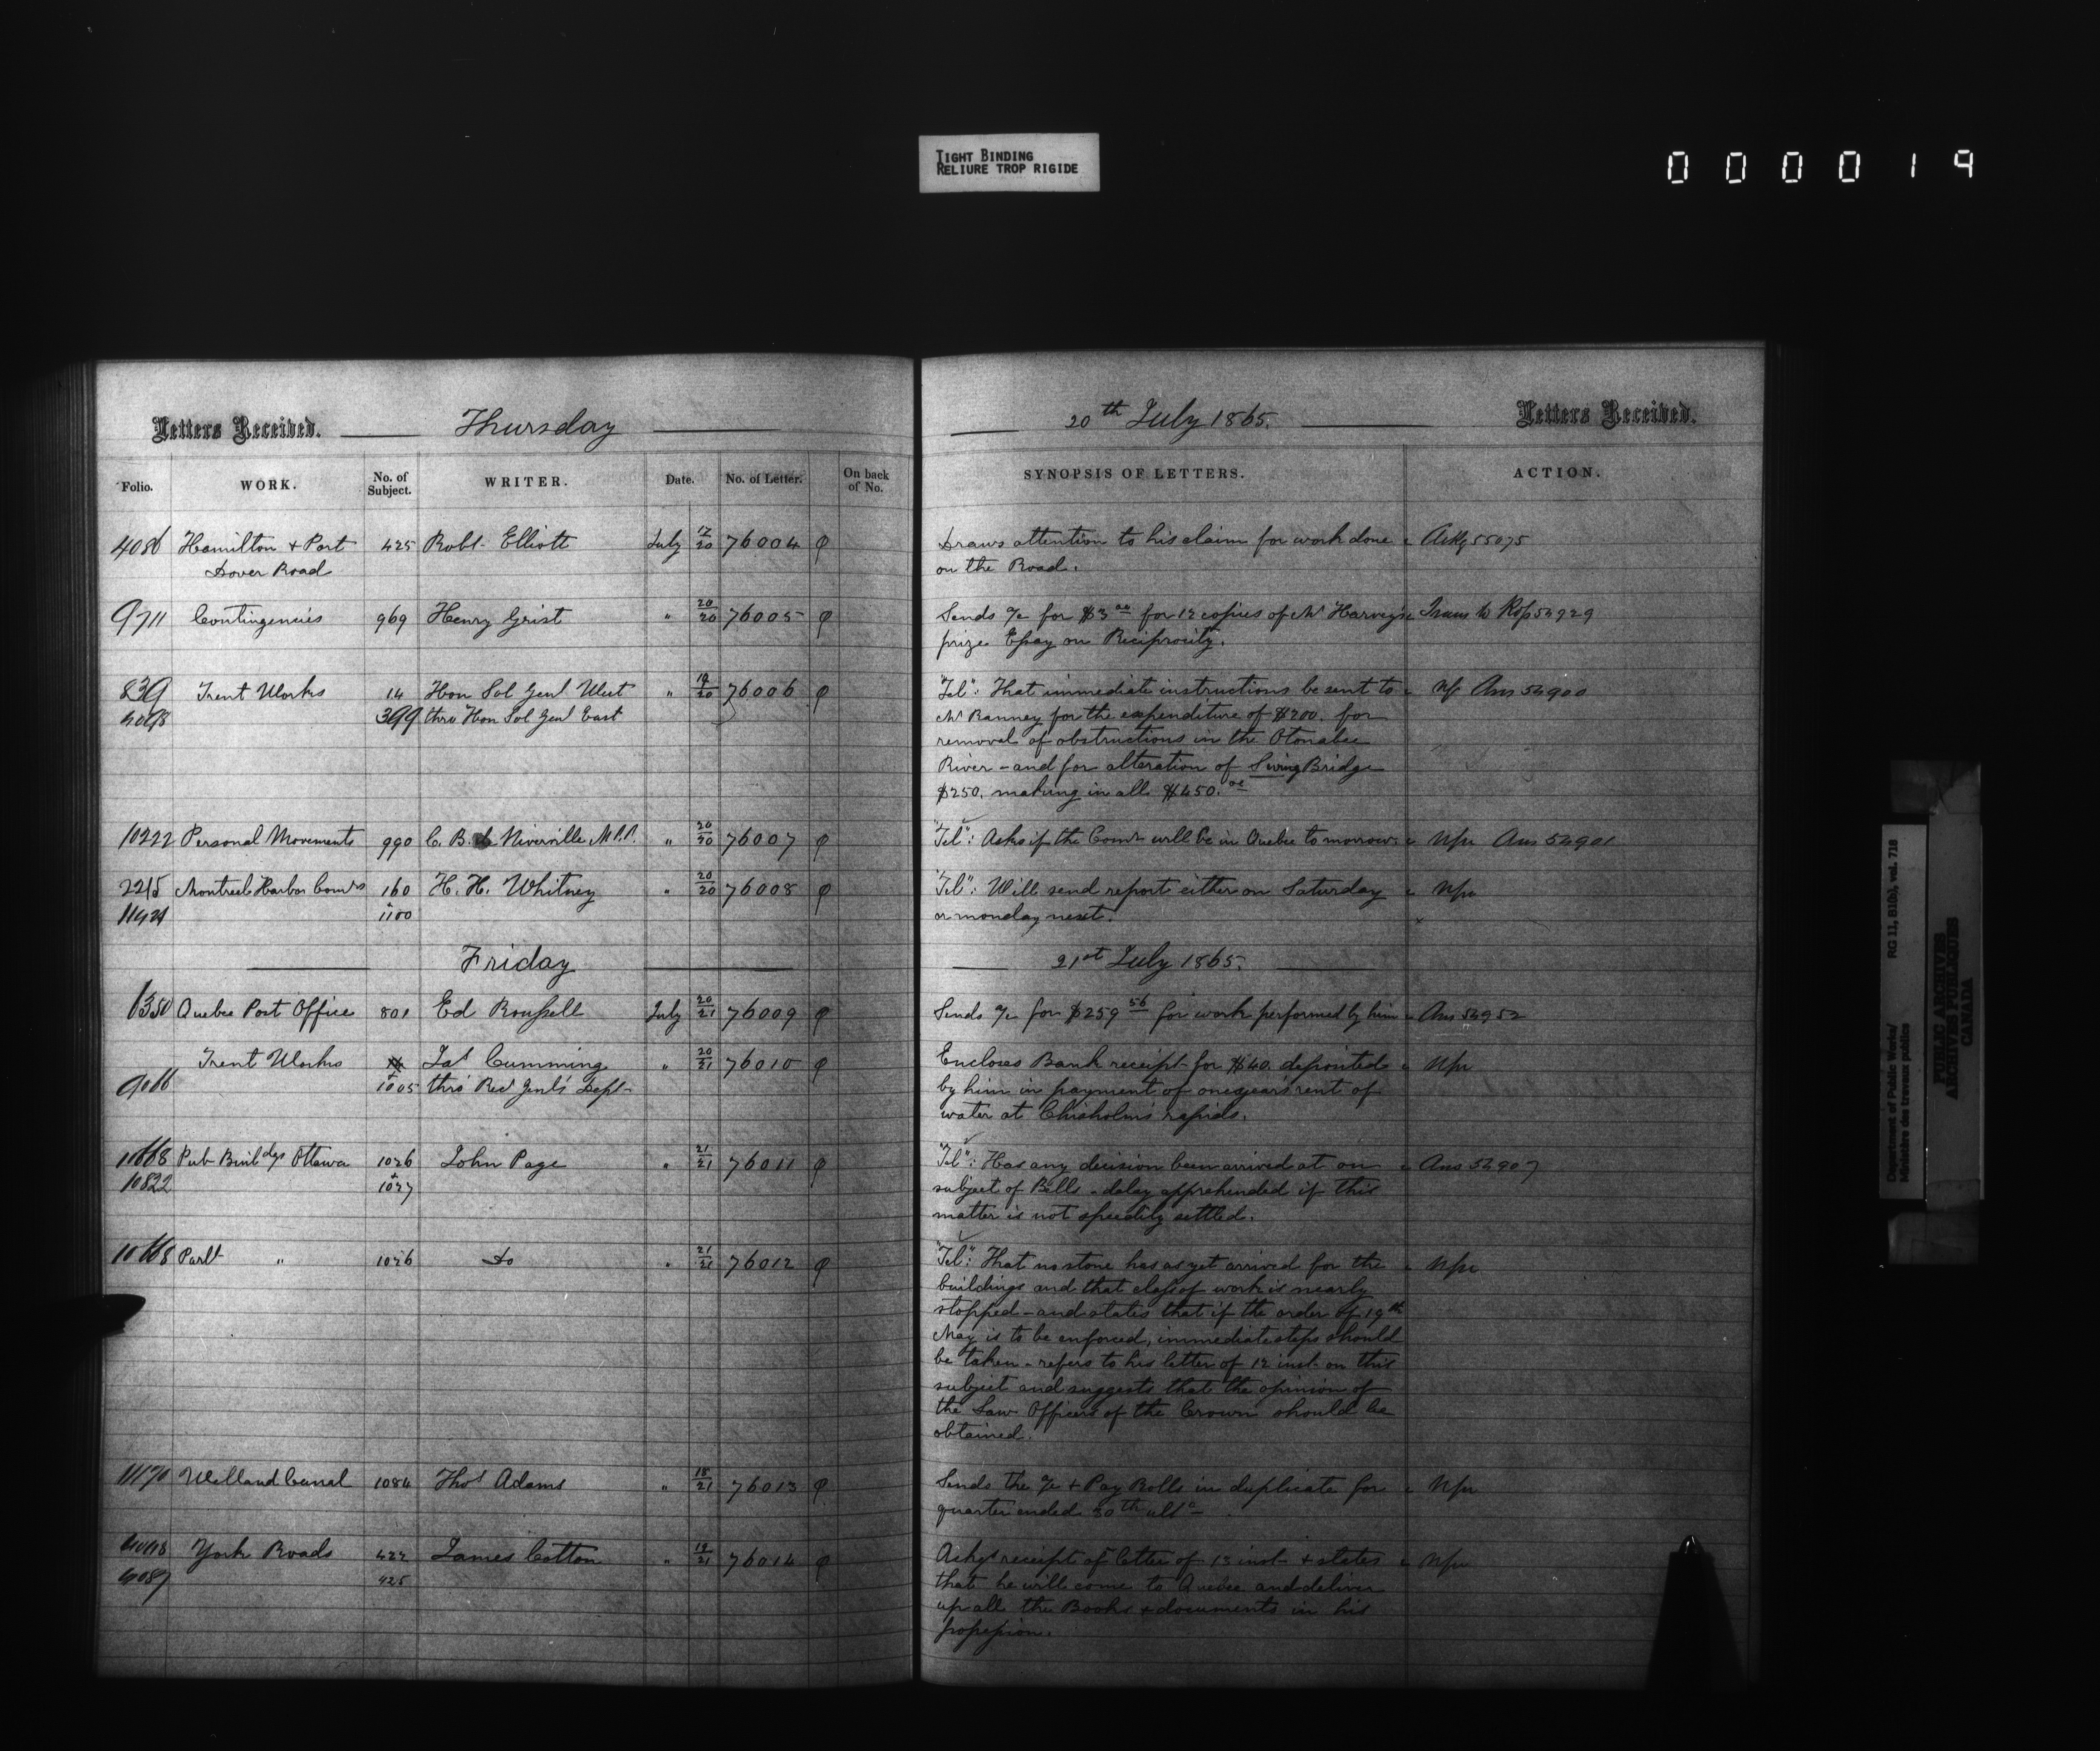 TIGHT BINDING
RELIURE TROP RIGIDE
000019
Letters Received. Thursday 20th July 1865. Letters Received.
Folio. WORK. No. of Subject. WRITER. Date. No. of Letter. On back of No. SYNOPSIS OF LETTERS. ACTION.
4086 Hamilton + Port 425 Robt. Elliott July 17/20 76004 Draws attention to his claim for work done Ackg 55075
Dover Road on the Road.
9711 Contingencies 969 Henry Grist " 20/20 76005 Sends a/c for $3 00 for 12 copies of Mr Harvey's Trans to Rec 54929
prize Essay on Reciprocity.
839 Trent Works 14 Hon Sol Genl West " 19/20 76006 "Tel": That immediate instructions be sent to Ans 54900
4098 399 thro Hon Sol Genl East Mr Ranney for the expenditure of $200. for
removal of obstructions in the Otonabee
River - and for alteration of Swing Bridge
$250. making in all $450. 00
10222 Personal Movements 990 C. B. de Niverville M.P.P. " 20/20 76007 "Tel": Asks if the Comr will be in Quebec to morrow. Npr Ans 54901
2215 Montreal Harbor Comrs 160 H. H. Whitney " 20/20 76008 "Tel": Will send report either on Saturday Npr
11421 + 1100 or monday next.
Friday 21st July 1865.
1350 Quebec Post Office 801 Ed Roussell July 20/21 76009 Sends a/c for $259 56 for work performed by him Ans 54952
Trent Works Jas Cumming " 20/21 76010 Encloses Bank receipt for $40. deposited Npr
9066 + 1005 thro' Recr Genl's Dept by him in payment of one year's rent of
water at Chisholms rapids.
10668 Pub Buildgs Ottawa 1026 John Page " 21/21 76011 "Tel": Has any decision been arrived at on Ans 54907
10822 + 1027 subject of Bells - delay apprehended if this
matter is not speedily settled.
10668 Parlt " 1026 Do " 21/21 76012 "Tel": That no stone has as yet arrived for the Npr
buildings and that class of work is nearly
stopped - and states that if the order of 19th
May is to be enforced, immediate steps should
be taken - refers to his letter of 12 inst. on this
subject and suggests that the opinion of
the Law Officers of the Crown should be
obtained.
11170 Welland Canal 1084 Thos Adams " 18/21 76013 Sends the a/c + Pay Rolls in duplicate for Npr
quarter ended 30th ulto
4048 York Roads 422 James Cotton " 19/21 76014 Ackgs receipt of letter of 13 inst. + states Npr
4087 425 that he will come to Quebec and deliver
up all the Books + documents in his
possession.
Department of Public Works/ RG 11, B1(b), vol. 718
Ministère des travaux publics
PUBLIC ARCHIVES
ARCHIVES PUBLIQUES
CANADA